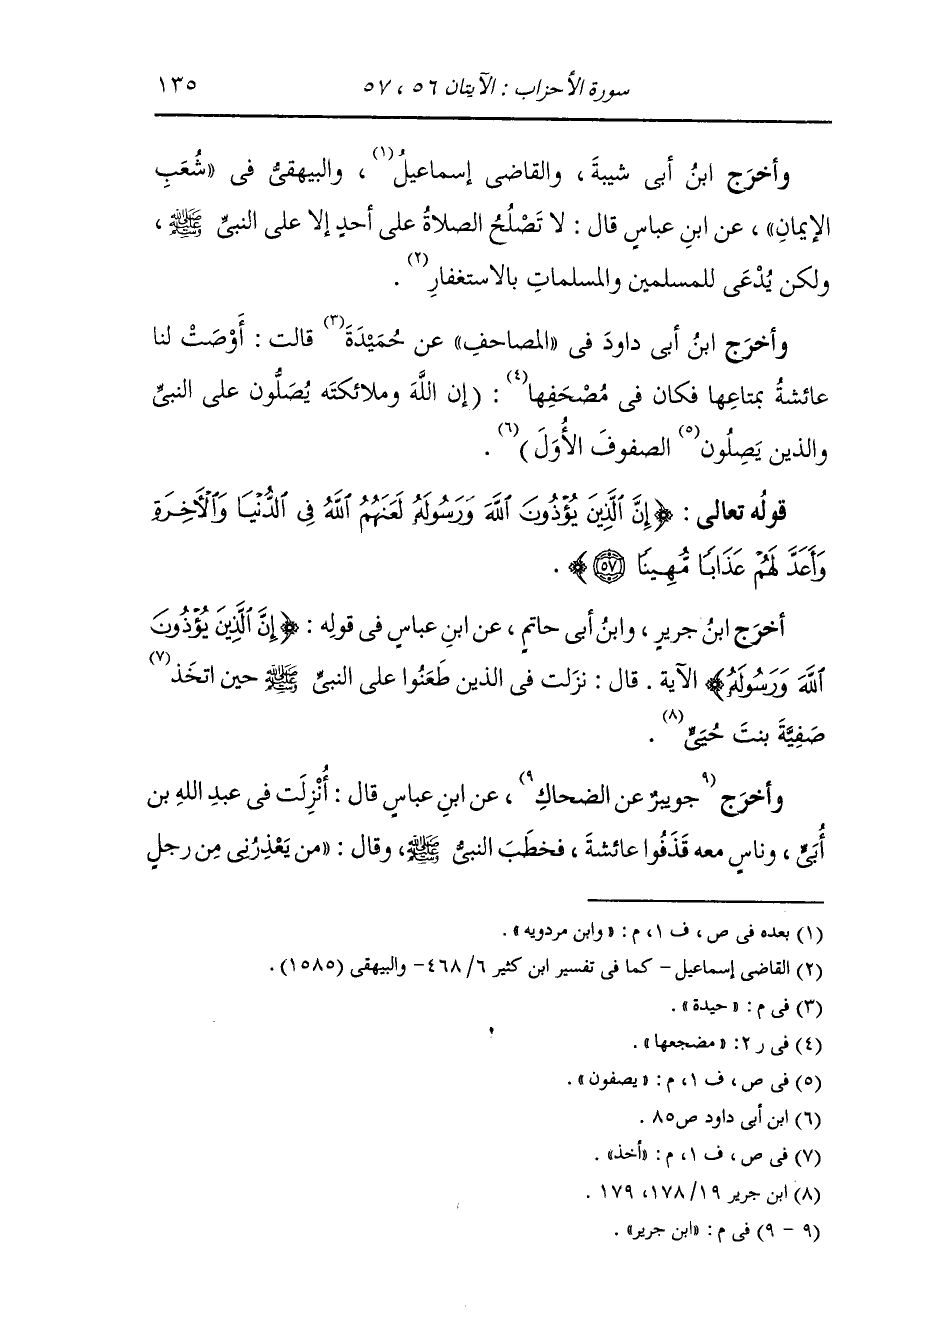 سورة الأحزاب : الآيتان ٥٦ ، ٥٧ ١٣٥
وأخرَج ابنُ أبى شيبةَ ، والقاضى إسماعيلُ(١) ، والبيهقىُّ فى «شُعَبِ
الإيمانِ» ، عن ابنِ عباسٍ قال : لا تَصْلُحُ الصلاةُ على أحدٍ إلا على النبىِّ ﷺ ،
ولكن يُدْعَى للمسلمين والمسلماتِ بالاستغفارِ(٢) .
وأخرَج ابنُ أبى داودَ فى «المصاحفِ» عن حُمَيْدَةَ(٣) قالت : أَوْصَتْ لنا
عائشةُ بمتاعِها فكان فى مُصْحَفِها(٤) : (إن اللَّهَ وملائكتَه يُصَلُّون على النبىِّ
والذين يَصِلُون(٥) الصفوفَ الأُوَلَ)(٦) .
قولُه تعالى : ﴿إِنَّ ٱلَّذِينَ يُؤْذُونَ ٱللَّهَ وَرَسُولَهُۥ لَعَنَهُمُ ٱللَّهُ فِى ٱلدُّنْيَا وَٱلْأَخِرَةِ
وَأَعَدَّ لَهُمْ عَذَابًا مُّهِينًا ٥٧﴾ .
أخرَج ابنُ جريرٍ ، وابنُ أبى حاتمٍ ، عن ابنِ عباسٍ فى قولِه : ﴿إِنَّ ٱلَّذِينَ يُؤْذُونَ
ٱللَّهَ وَرَسُولَهُۥ﴾ الآية . قال : نزَلت فى الذين طَعَنُوا على النبىِّ ﷺ حين اتخَذ(٧)
صَفِيَّةَ بنتَ حُيَىٍّ(٨) .
وأخرَج (٩جويبرٌ عن الضحاكِ٩) ، عن ابنِ عباسٍ قال : أُنْزِلَت فى عبدِ اللهِ بن
أُبَىٍّ ، وناسٍ معه قَذَفُوا عائشةَ ، فخطَبَ النبىُّ ﷺ، وقال : «من يَعْذِرُنِى مِن رجلٍ
(١) بعده فى ص ، ف ١، م : «وابن مردويه» .
(٢) القاضى إسماعيل – كما فى تفسير ابن كثير ٦/ ٤٦٨ – والبيهقى (١٥٨٥) .
(٣) فى م : «حيدة» .
(٤) فى ر ٢: «مضجعها» .
(٥) فى ص ، ف ١، م : «يصفون» .
(٦) ابن أبى داود ص٨٥ .
(٧) فى ص ، ف ١، م : «أخذ» .
(٨) ابن جرير ١٩/ ١٧٨، ١٧٩ .
(٩ – ٩) فى م : «ابن جرير» .